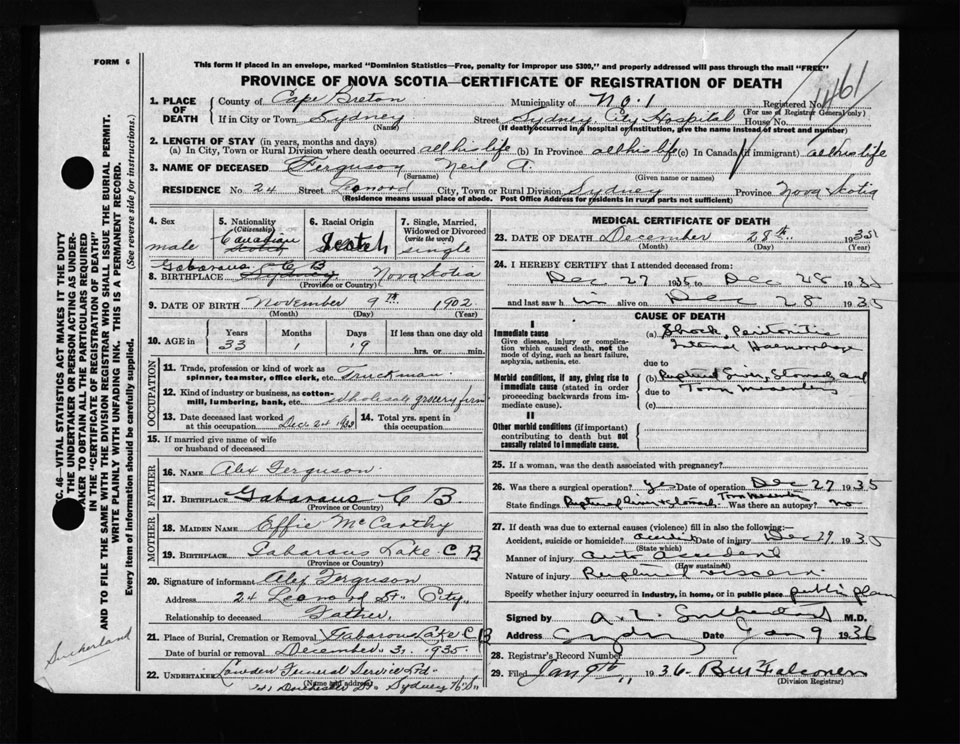 FORM 6
This form if placed in an envelope, marked "Dominion Statistics—Free, penalty for improper use $300," and properly addressed will pass through the mail "FREE"
PROVINCE OF NOVA SCOTIA—CERTIFICATE OF REGISTRATION OF DEATH
1461
1. PLACE OF DEATH
County of Cape Breton Municipality of No. 1 Registered No.
(For use of Registrar General only)
If in City or Town Sydney Street Sydney City Hospital House No.
(Name) (If death occurred in a hospital or institution, give the name instead of street and number)
2. LENGTH OF STAY (in years, months and days)
(a) In City, Town or Rural Division where death occurred all his life (b) In Province all his life (c) In Canada (if immigrant) all his life
3. NAME OF DECEASED Ferguson Neil A.
(Surname) (Given name or names)
RESIDENCE No. 24 Street Leonord City, Town or Rural Division Sydney Province Nova Scotia
(Residence means usual place of abode. Post Office Address for residents in rural parts not sufficient)
4. Sex male
5. Nationality (Citizenship) Canadian Scotch
6. Racial Origin Scotch
7. Single, Married, Widowed or Divorced (write the word) single
8. BIRTHPLACE Gabarous C B Sydney Nova Scotia
(Province or Country)
9. DATE OF BIRTH November 9th 1902
(Month) (Day) (Year)
10. AGE in Years Months Days If less than one day old
33 1 19 hrs. or min.
OCCUPATION
11. Trade, profession or kind of work as spinner, teamster, office clerk, etc. Truckman
12. Kind of industry or business, as cotton-mill, lumbering, bank, etc. Wholesale grocery firm
13. Date deceased last worked at this occupation Dec 24 1935
14. Total yrs. spent in this occupation
15. If married give name of wife or husband of deceased
FATHER
16. NAME Alex Ferguson
17. BIRTHPLACE Gabarous C B
(Province or Country)
MOTHER
18. MAIDEN NAME Effie McCarthy
19. BIRTHPLACE Gabarous Lake C B
(Province or Country)
20. Signature of informant Alex Ferguson
Address 24 Leonord St. City
Relationship to deceased Father
21. Place of Burial, Cremation or Removal Gabarous Lake C B
Date of burial or removal December 31 1935
22. UNDERTAKER Lowden Funeral Service Ltd
(Name and address) Dorchester St. Sydney N.S.
MEDICAL CERTIFICATE OF DEATH
23. DATE OF DEATH December 28th 1935
(Month) (Day) (Year)
24. I HEREBY CERTIFY that I attended deceased from:
Dec 27 1935 to Dec 28 1935
and last saw him alive on Dec 28 1935
CAUSE OF DEATH
I
Immediate cause
Give disease, injury or complication which caused death, not the mode of dying, such as heart failure, asphyxia, asthenia, etc.
(a) Shock, Peritonitis
Internal Haemorrhage
due to
Morbid conditions, if any, giving rise to immediate cause (stated in order proceeding backwards from immediate cause).
(b) Ruptured Liver, Stomach and
due to Torn mesentery
(c)
II
Other morbid conditions (if important) contributing to death but not causally related to immediate cause.
25. If a woman, was the death associated with pregnancy?
26. Was there a surgical operation? yes Date of operation Dec 27 1935
State findings Ruptured Liver Torn Was there an autopsy? no
27. If death was due to external causes (violence) fill in also the following:—
Accident, suicide or homicide? accident Date of injury Dec 27 1935
(State which)
Manner of injury Auto accident
(How sustained)
Nature of injury Ruptured viscera
Specify whether injury occurred in industry, in home, or in public place public place
Signed by M.D.
Address Sydney Date Jan 9 1936
28. Registrar's Record Number
29. Filed Jan 9th 1936 Falconer
(Division Registrar)
C. 46—VITAL STATISTICS ACT MAKES IT THE DUTY
THE UNDERTAKER OR PERSON ACTING AS UNDERTAKER TO OBTAIN ALL THE PARTICULARS REQUIRED
IN THE "CERTIFICATE OF REGISTRATION OF DEATH"
AND TO FILE THE SAME WITH THE DIVISION REGISTRAR WHO SHALL ISSUE THE BURIAL PERMIT.
WRITE PLAINLY WITH UNFADING INK. THIS IS A PERMANENT RECORD.
Every item of information should be carefully supplied. (See reverse side for instructions.)